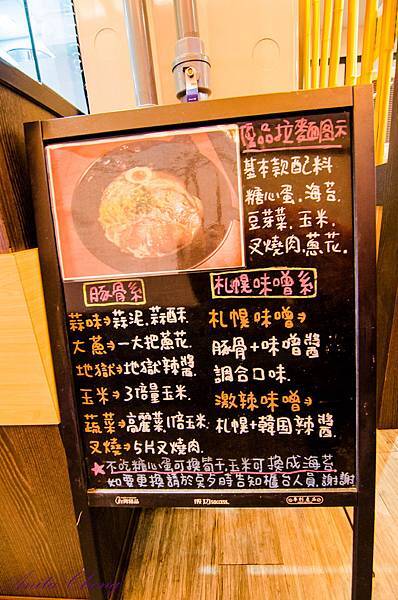 拉麵圖示
基本款配料
糖心蛋.海苔.
豆芽菜.玉米.
叉燒肉.蔥花.
豚骨系
蒜味→蒜泥.蒜酥.
大蔥→一大把蔥花.
地獄→地獄辣醬
玉米→3倍量玉米.
蔬菜→高麗菜.1倍玉米.
叉燒→5片叉燒肉.
札幌味噌系
札幌味噌→
豚骨+味噌醬
調合口味.
激辣味噌→
札幌+韓國辣醬
★不吃糖心蛋可換筍干.玉米可換成海苔
如要更換請於點餐時告知櫃台人員.謝謝